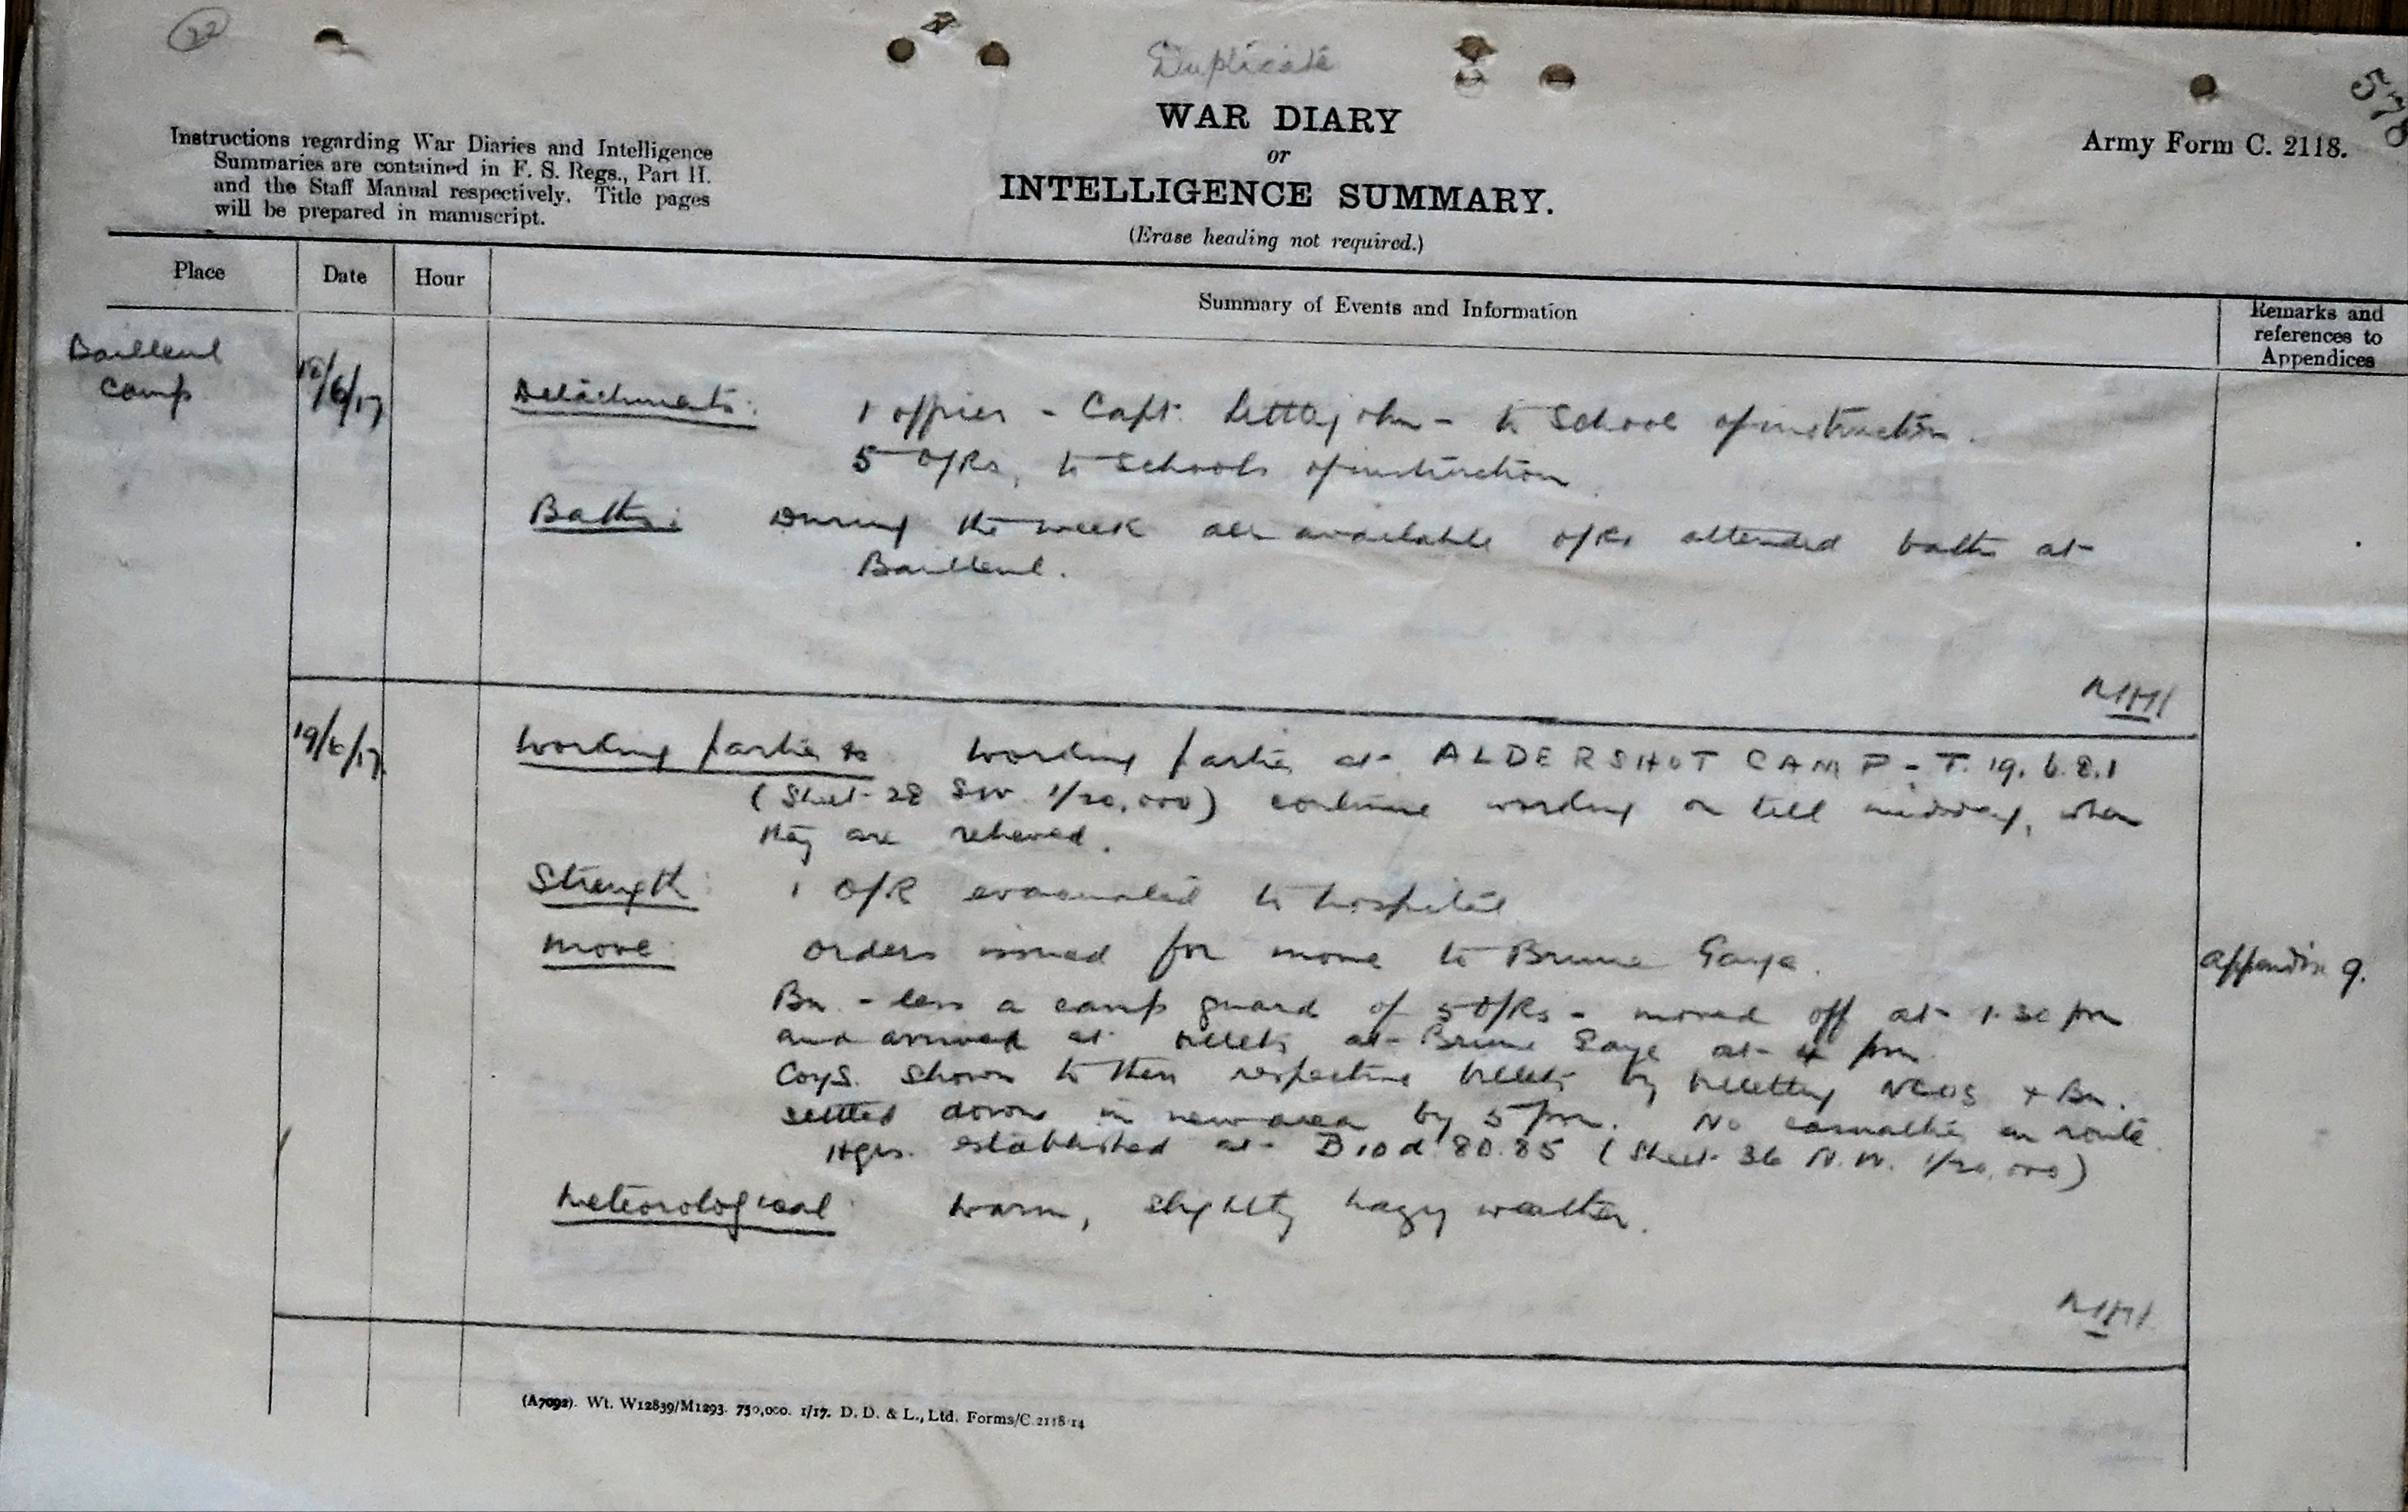 22
Duplicate
578
WAR DIARY
or
INTELLIGENCE SUMMARY.
(Erase heading not required.)
Army Form C. 2118.
Instructions regarding War Diaries and Intelligence
Summaries are contained in F. S. Regs., Part II.
and the Staff Manual respectively. Title pages
will be prepared in manuscript.
Place Date Hour Summary of Events and Information Remarks and
references to
Appendices
Bailleul
Camp
18/6/17
Detachments: 1 officer - Capt. Littlejohn - to School of instruction.
5 O/Rs, to Schools of instruction
Baths: During the week all available O/Rs attended baths at
Bailleul.
19/6/17 Working parties Working parties at ALDERSHOT CAMP - T. 19. b. 8.1
(Sheet 28 SW 1/20,000) continue working on till midday, when
they are relieved.
Strength: 1 O/R evacuated to hospital
Move: Orders issued for move to Brune Gaye. Appendix 9.
Bn. - less a camp guard of 5 O/Rs - moved off at 1.30 pm
and arrived at billets at Brune Gaye at 4 pm.
Coys. shown to their respective billets by billeting NCOs + Bn.
settled down in new area by 5 pm. No casualties en route.
Hqrs. established at B 10 d 80.85 (Sheet 36 N.W. 1/20,000)
Meteorological: Warm, slightly hazy weather.
(A7092). Wt. W12839/M1293. 750,000. 1/17. D. D. & L., Ltd. Forms/C.2118/14